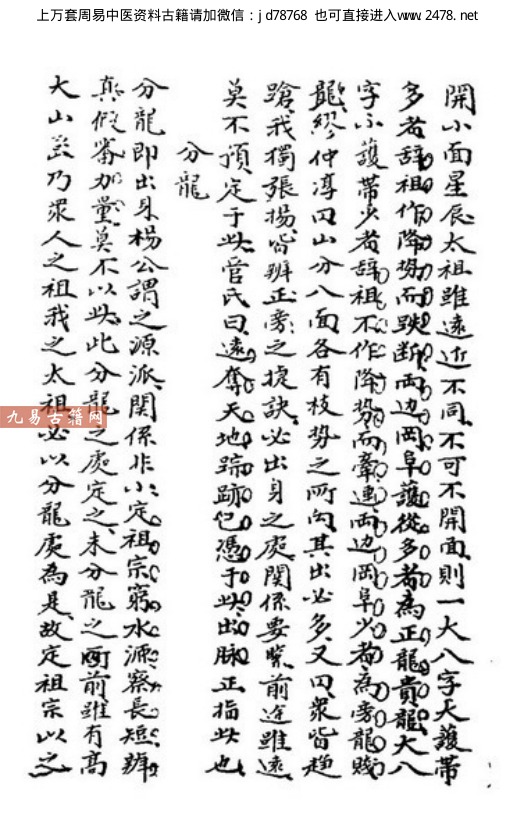 上万套周易中医资料古籍请加微信：jd78768 也可直接进入www.2478.net
開小面星辰太祖雖遠近不同不可不開面則一大八字大護帶
多者辞祖作降势而跌断両边岡阜護從多者為正龍貴龍大八
字小護帶少者辞祖不作降势而牽連両边岡阜少者為旁龍賤
龍繆仲淳曰山分八面各有枝势之所向其出必多又曰眾皆趋
蹌我獨張揚皆辨正旁之捷訣必出身之處関係要緊前途雖遠
莫不預定于此管氏曰遠奪天地踪跡已憑于此出脉正指此也
分龍
分龍即出身楊公謂之源派関係非小定祖宗窮水源察長短辨
真假審加量莫不以此此分龍之處定之未分龍之前雖有高
大山並乃眾人之祖我之太祖必以分龍處為是故定祖宗以之
九易古籍网